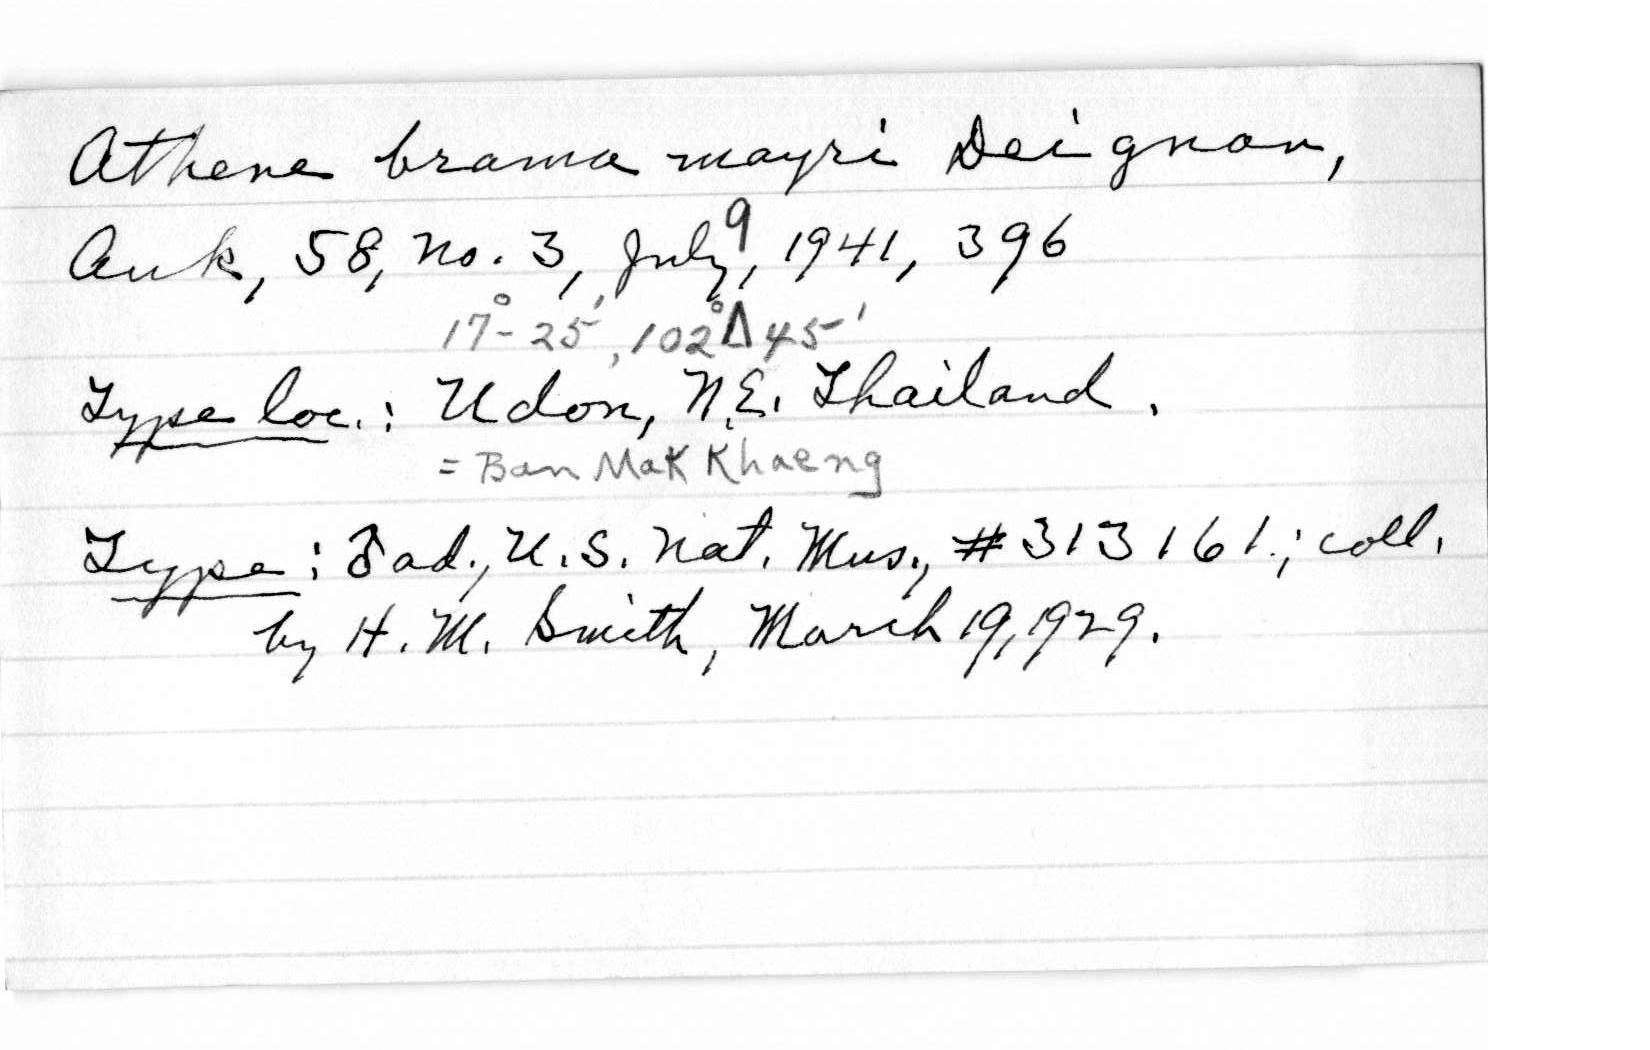 Athene brama mayri Deignan,
Auk, 58, no. 3, July 9, 1941, 396
17°-25', 102° 45'
Type loc.: Udon, N.E. Thailand.
= Ban Mak Khaeng
Type: ♂ ad., U.S. Nat. Mus., #313161.; coll.
by H. M. Smith, March 19, 1929.